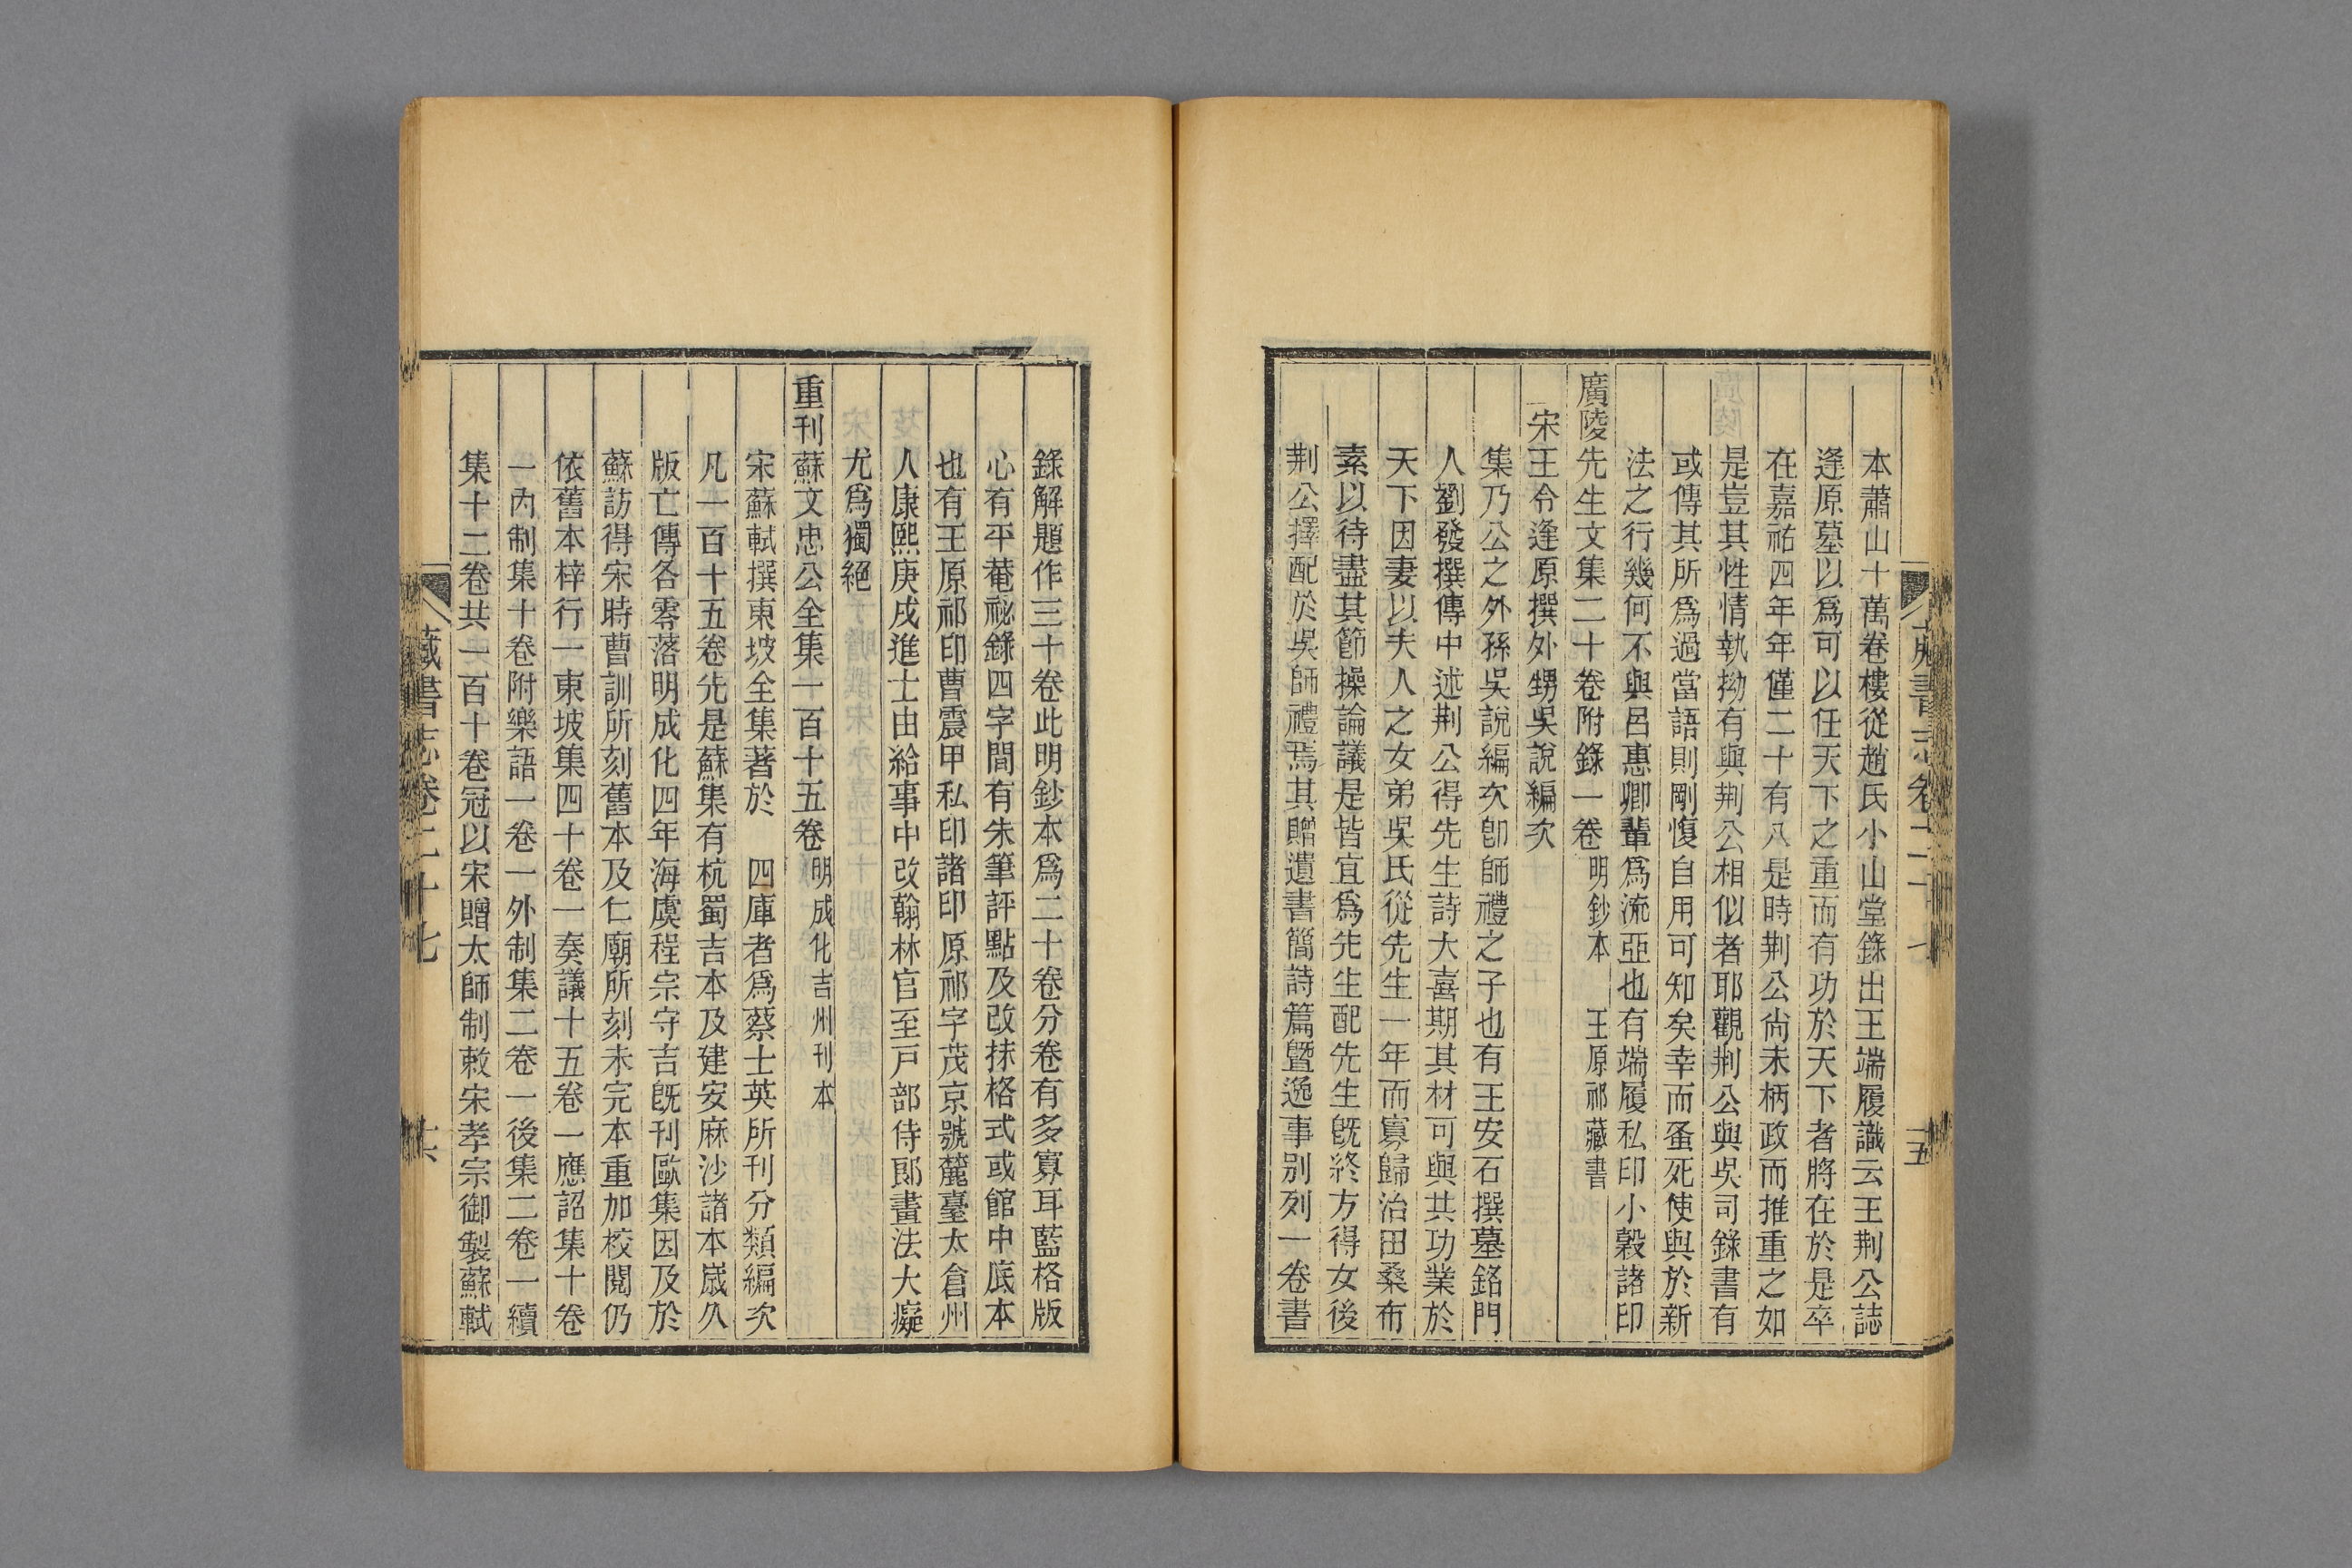 本蕭山十萬卷樓從趙氏小山堂錄出王端履識云王荆公誌
逢原墓以爲可以任天下之重而有功於天下者將在於是卒
在嘉祐四年年僅二十有八是時荆公尙未柄政而推重之如
是豈其性情執拗有與荆公相似者耶觀荆公與吳司錄書有
或傳其所爲過當語則剛愎自用可知矣幸而蚤死使與於新
法之行幾何不與呂惠卿輩爲流亞也有端履私印小穀諸印
廣陵先生文集二十卷附錄一卷 明鈔本 王原祁藏書
宋王令逢原撰外甥吳說編次
集乃公之外孫吳說編次卽師禮之子也有王安石撰墓銘門
人劉發撰傳中述荆公得先生詩大喜期其材可與其功業於
天下因妻以夫人之女弟吳氏從先生一年而寡歸治田桑布
素以待盡其節操論議是皆宜爲先生配先生旣終方得女後
荆公擇配於吳師禮焉其贈遺書簡詩篇曁逸事别列一卷書
錄解題作三十卷此明鈔本爲二十卷分卷有多寡耳藍格版
心有平菴祕錄四字間有朱筆評點及改抹格式或館中底本
也有王原祁印曹震甲私印諸印原祁字茂京號麓臺太倉州
人康熙庚戌進士由給事中改翰林官至戸部侍郞畫法大癡
尤爲獨絕
重刊蘇文忠公全集一百十五卷 明成化吉州刊本
宋蘇軾撰東坡全集著於 四庫者爲蔡士英所刊分類編次
凡一百十五卷先是蘇集有杭蜀吉本及建安麻沙諸本歲久
版亡傳各零落明成化四年海虞程宗守吉旣刊歐集因及於
蘇訪得宋時曹訓所刻舊本及仁廟所刻未完本重加校閱仍
依舊本梓行一東坡集四十卷一奏議十五卷一應詔集十卷
一內制集十卷附樂語一卷一外制集二卷一後集二卷一續
集十二卷共一百十卷冠以宋贈太師制敕宋孝宗御製蘇軾
藏書志卷二十七 共